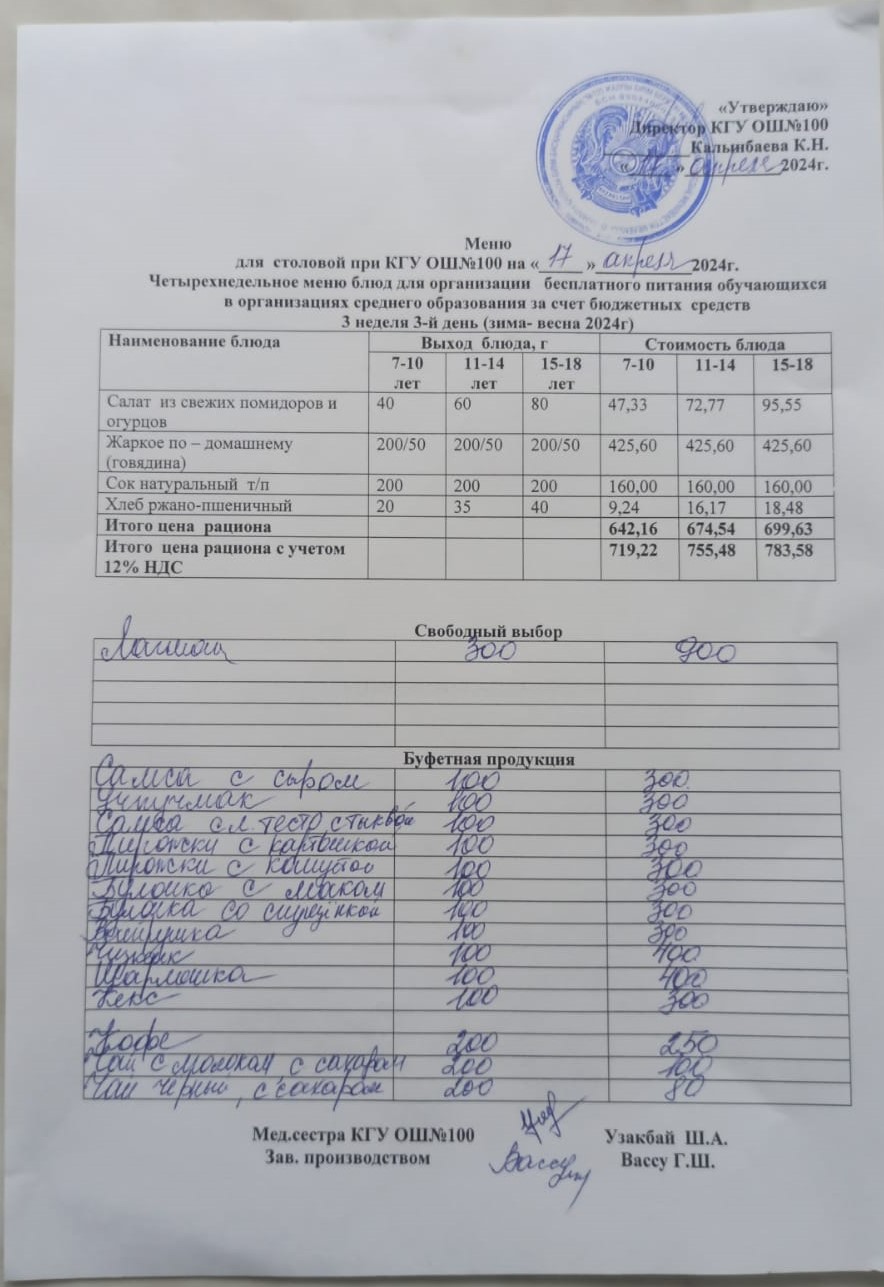 «Утверждаю»
Директор КГУ ОШ№100
__________Калынбаева К.Н.
«17» апреля 2024г.
Меню
для столовой при КГУ ОШ№100 на «17» апреля 2024г.
Четырехнедельное меню блюд для организации бесплатного питания обучающихся
в организациях среднего образования за счет бюджетных средств
3 неделя 3-й день (зима- весна 2024г)
Наименование блюда Выход блюда, г Стоимость блюда
7-10 лет 11-14 лет 15-18 лет 7-10 11-14 15-18
Салат из свежих помидоров и 40 60 80 47,33 72,77 95,55
огурцов
Жаркое по – домашнему 200/50 200/50 200/50 425,60 425,60 425,60
(говядина)
Сок натуральный т/п 200 200 200 160,00 160,00 160,00
Хлеб ржано-пшеничный 20 35 40 9,24 16,17 18,48
Итого цена рациона 642,16 674,54 699,63
Итого цена рациона с учетом 719,22 755,48 783,58
12% НДС
Свободный выбор
300 900
Буфетная продукция
Самса с сыром 100 300
Учпучмак 100 300
Самса сл. тесто с тыквой 100 300
Пирожки с картошкой 100 300
Пирожки с капустой 100 300
Булочка с маком 100 300
Булочка со 100 300
100 300
100 400
100 400
Кекс 100 300
Кофе 200 250
Чай с молоком, с сахаром 200 100
Чай черный, с сахаром 200 80
Мед.сестра КГУ ОШ№100 Узакбай Ш.А.
Зав. производством Вассу Вассу Г.Ш.